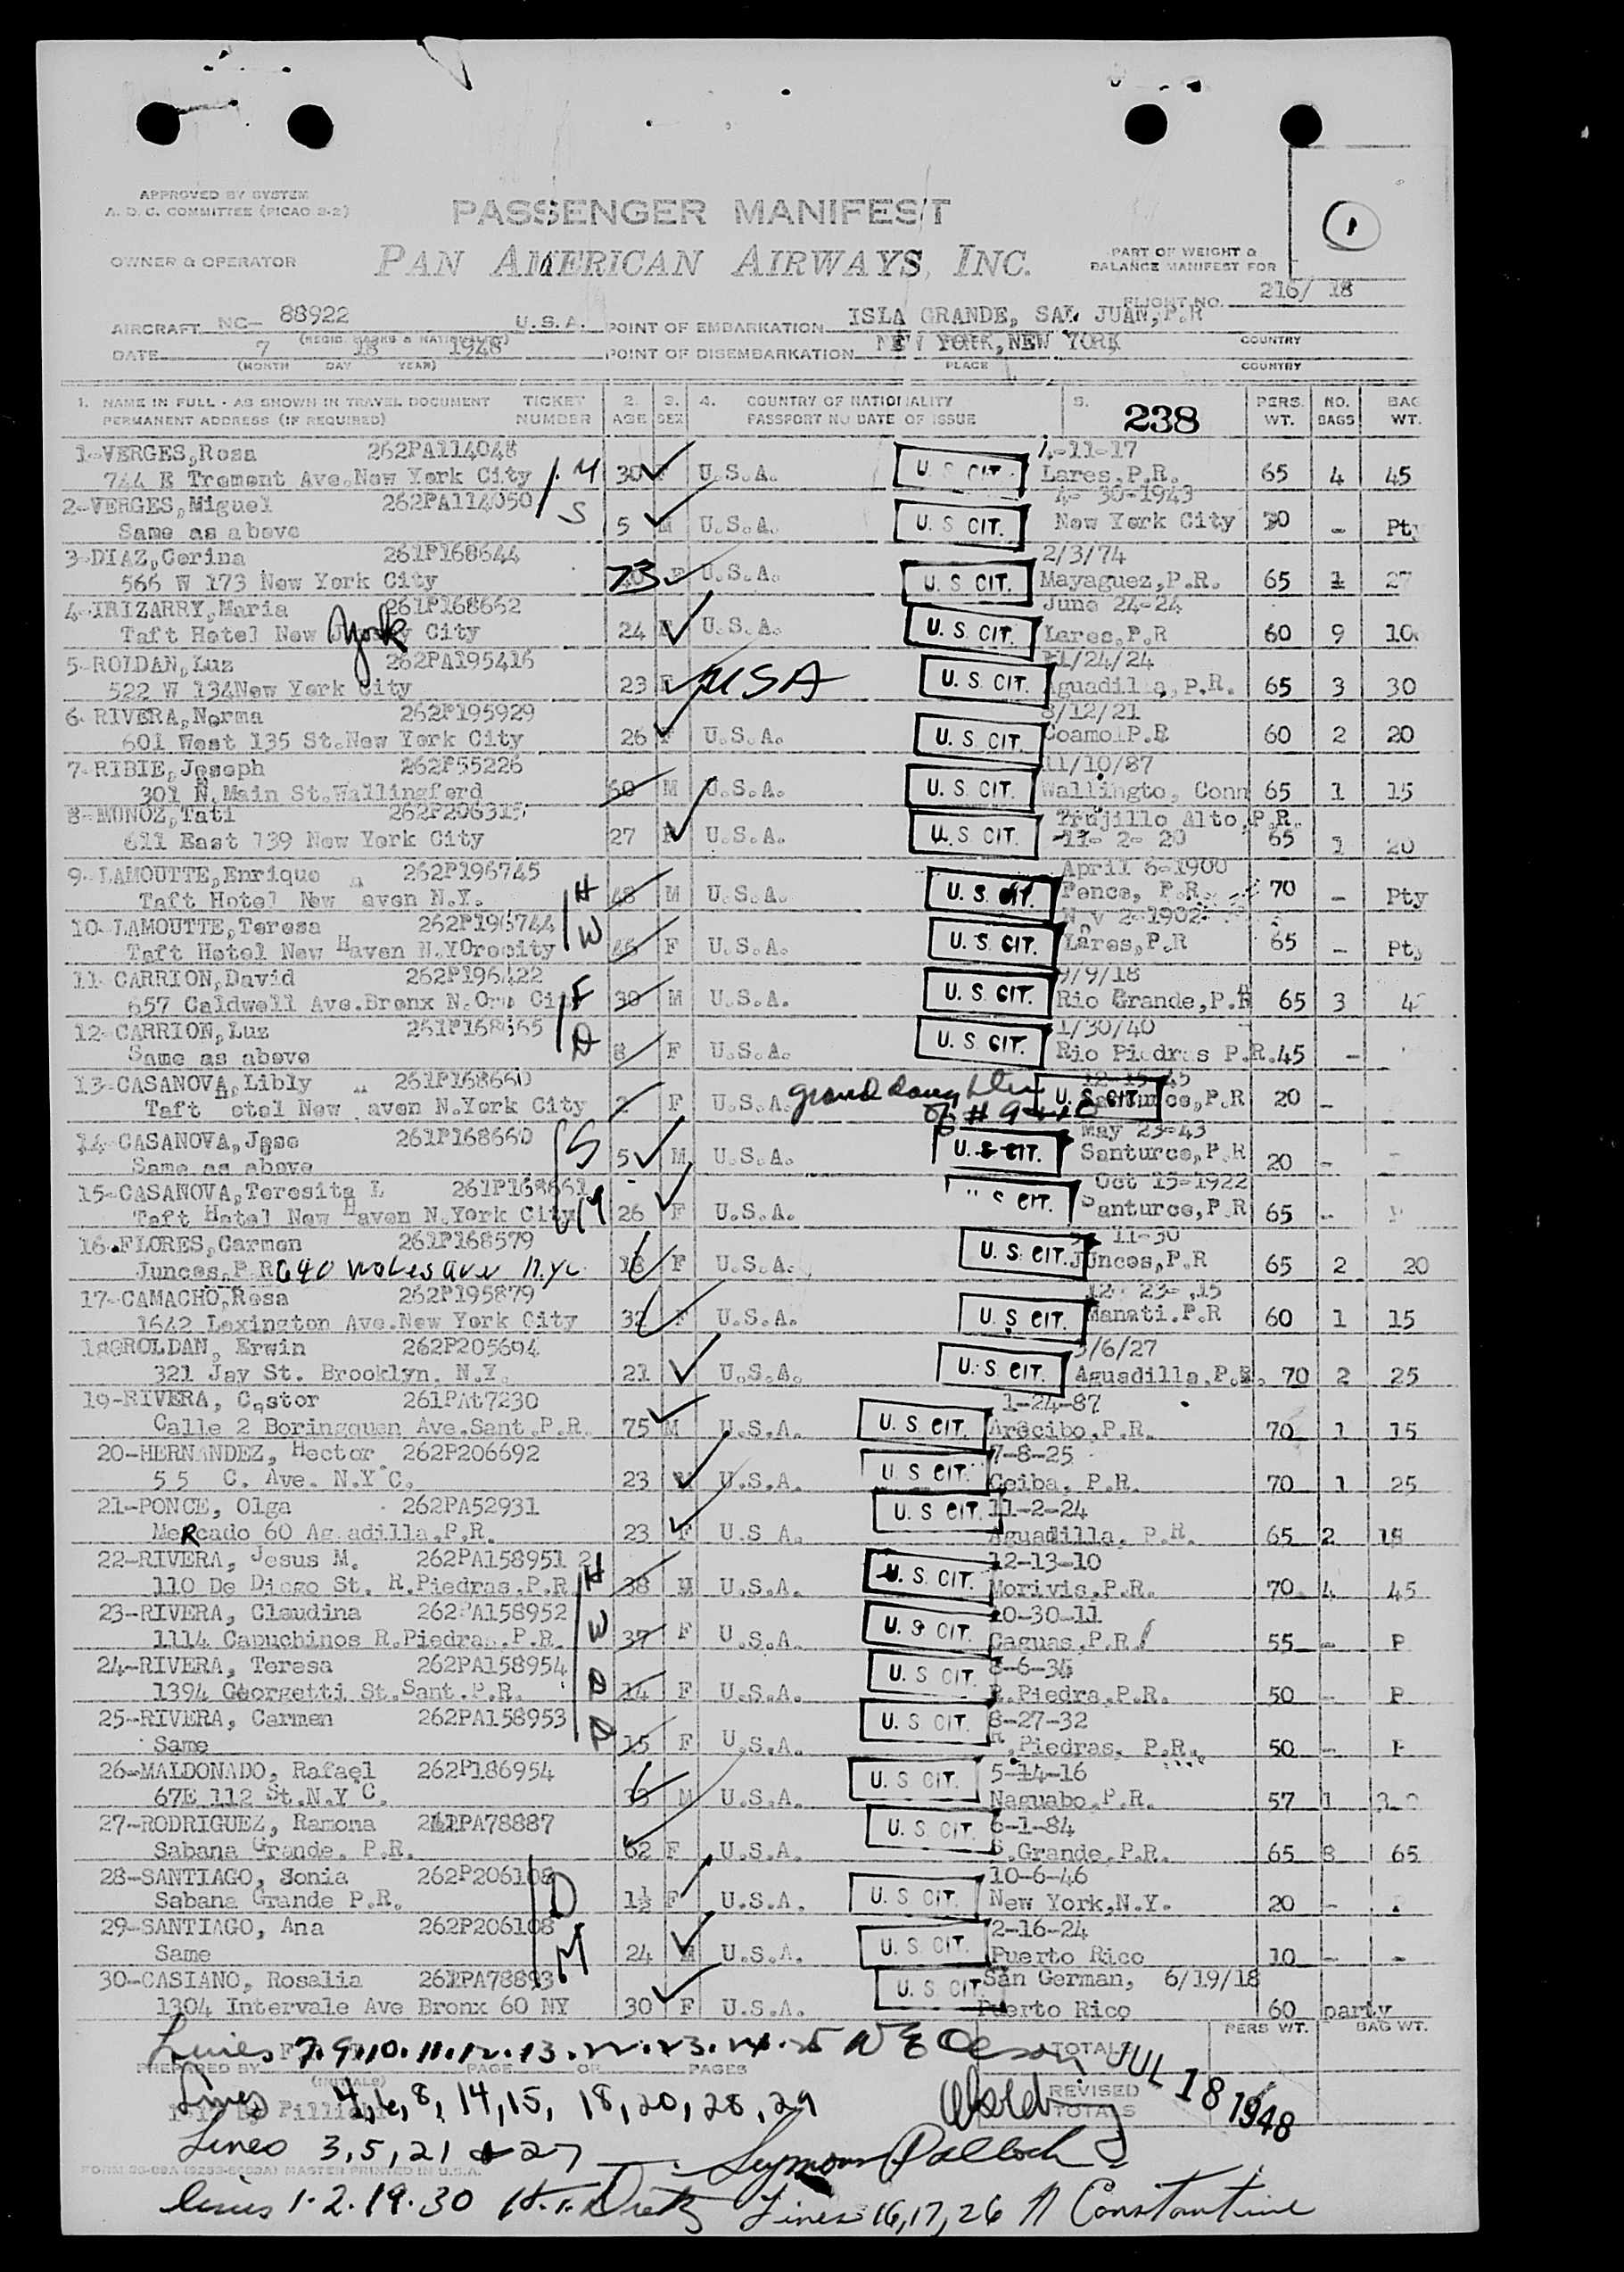 APPROVED BY SYSTEM
A. D. C. COMMITTEE (PICAO 2-2)
PASSENGER MANIFEST
1
OWNER & OPERATOR
PAN AMERICAN AIRWAYS, INC.
PART OF WEIGHT &
BALANCE MANIFEST FOR
FLIGHT NO. 216/ 18
AIRCRAFT NC- 88922 U.S.A. POINT OF EMBARKATION ISLA GRANDE, SAN JUAN, P.R
(REGIS. MARKS & NATIONALITY) COUNTRY
DATE 7 18 1948 POINT OF DISEMBARKATION NEW YORK, NEW YORK
(MONTH DAY YEAR) PLACE COUNTRY
1. NAME IN FULL - AS SHOWN IN TRAVEL DOCUMENT TICKET 2. 3. 4. COUNTRY OF NATIONALITY 5. 238 PERS. NO. BAG
PERMANENT ADDRESS (IF REQUIRED) NUMBER AGE SEX PASSPORT NO DATE OF ISSUE WT. BAGS WT.
1-VERGES,Rosa 262PA114048 4-11-17
744 E Tremont Ave.New York City M 30 F U.S.A. U S CIT. Lares,P.R. 65 4 45
2-VERGES,Miguel 262PA114050 4- 30-1943
Same as above S 5 M U.S.A. U. S CIT. New York City 30 - Pty
3-DIAZ,Cerina 261P168644 2/3/74
566 W 173 New York City 73 F U.S.A. U. S CIT. Mayaguez,P.R. 65 1 27
4-IRIZARRY,Maria 261P168662 June 24-24
Taft Hotel New York City 24 F U.S.A. U. S. CIT. Lares,P.R 60 9 10
5-ROLDAN,Luz 262PA195416 11/24/24
522 W 134New York City 23 F USA U. S. CIT. Aguadilla,P.R. 65 3 30
6-RIVERA,Norma 262P195929 8/12/21
601 West 135 St.New York City 26 F U.S.A. U. S. CIT. Coamo P.R 60 2 20
7-RIBIE,Joseph 262P55226 11/10/87
301 N.Main St.Wallingford 60 M U.S.A. U. S. CIT. Wallingto, Conn 65 1 15
8-MUNOZ,Tati 262P206315 Trujillo Alto,P.R.
611 East 139 New York City 27 F U.S.A. U. S. CIT. -11- 2- 20 65 1 20
9-LAMOUTTE,Enrique 262P196745 April 6-1900
Taft Hotel New aven N.Y. H 48 M U.S.A. U. S. CIT. Ponce, P.R. 70 - Pty
10-LAMOUTTE,Teresa 262P196744 Nov 2-1902
Taft Hotel New Haven N.YOrocity W 46 F U.S.A. U. S. CIT. Lares,P.R 65 - Pty
11-CARRION,David 262P196422 9/9/18
657 Caldwell Ave.Bronx F 30 M U.S.A. U. S. CIT. Rio Grande,P.R 65 3 4
12-CARRION,Luz 261P168665 1/30/40
Same as above D 8 F U.S.A. U. S CIT. Rio Piedras P.R. 45 -
13-CASANOVA,Libly 261P168660 12-15-45
Taft otel New aven N.York City 2 F U.S.A. grand daughter U. S. CIT. Santurce,P.R 20 -
of # 9 & 10
14-CASANOVA,Jose 261P168660 May 23-43
Same as above S 5 M U.S.A. U. S CIT. Santurce,P.R 20 -
15-CASANOVA,Teresita L 261P168661 Oct 15-1922
Taft Hotel New Haven N.York City M 26 F U.S.A. S CIT. Santurce,P.R 65 -
16-FLORES,Carmen 261P168579 11-30
Juncos,P R 640 Wales ave N.Y.C. 18 F U.S.A. U. S. CIT. Juncos,P.R 65 2 20
17-CAMACHO,Rosa 262P195879 12- 23- ,15
1642 Lexington Ave.New York City 32 F U.S.A. U. S CIT. Manati.P.R 60 1 15
18-ROLDAN, Erwin 262P205694 5/6/27
321 Jay St. Brooklyn. N.Y. 21 U.S.A. U. S CIT. Aguadilla,P.R. 70 2 25
19-RIVERA, Castor 261PAt7230 1-24-87
Calle 2 Boringquen Ave.Sant.P.R. 75 M U.S.A. U. S CIT. Arecibo,P.R. 70 1 15
20-HERNANDEZ, Hector 262P206692 7-8-25
55 C. Ave. N.Y C. 23 M U.S.A. U S CIT. Ceiba, P.R. 70 1 25
21-PONCE, Olga 262PA52931 11-2-24
MeRcado 60 Ag adilla,P.R. 23 F U.S A. U S CIT. Aguadilla, P.R. 65 2 18
22-RIVERA, Jesus M. 262PA158951 2 12-13-10
110 De Diego St. R.Piedras.P.R H 38 M U.S.A. U. S. CIT. Morivis,P.R. 70 4 45
23-RIVERA, Claudina 262PA158952 10-30-11
1114 Capuchinos R.Piedras.P.R. W 37 F U.S.A. U. S CIT. Caguas.P.R 55 - P
24-RIVERA, Teresa 262PA158954 8-6-34
1394 Georgetti St.Sant.P.R. D 14 F U.S.A. U S CIT. R.Piedra,P.R. 50 - P
25-RIVERA, Carmen 262PA158953 8-27-32
Same D 15 F U.S.A. U. S CIT. R.Piedras, P.R. 50 - P
26-MALDONADO, Rafael 262P186954 5-14-16
67E 112 St.N.Y C. 33 M U.S.A. U. S CIT. Naguabo,P.R. 57 1
27-RODRIGUEZ, Ramona 261PA78887 6-1-84
Sabana Grande. P.R. 62 F U.S.A. U. S CIT. S.Grande,P.R. 65 8 65
28-SANTIAGO, Sonia 262P206108 10-6-46
Sabana Grande P.R. D 1½ F U.S.A. U. S CIT. New York,N.Y. 20 -
29-SANTIAGO, Ana 262P206108 2-16-24
Same M 24 M U.S.A. U. S CIT. Puerto Rico 10 - -
30-CASIANO, Rosalia 261PA78893 San German, 6/19/18
1304 Intervale Ave Bronx 60 NY 30 F U.S.A. U. S CIT Puerto Rico 60 party
PERS WT. BAG WT.
Lines 7.9.10.11.12.13.22.23.24.25 W E Olson TOTALS
PREPARED BY PAGE OF PAGES JUL 18 1948
(INITIALS)
Lines 4,6,8,14,15, 18,20,28,29 REVISED TOTALS
Lines 3,5,21 & 27 Seymour Pollock
MASTER PRINTED IN U.S.A.
lines 1.2.19.30 Lines 16,17,26 A Constantine